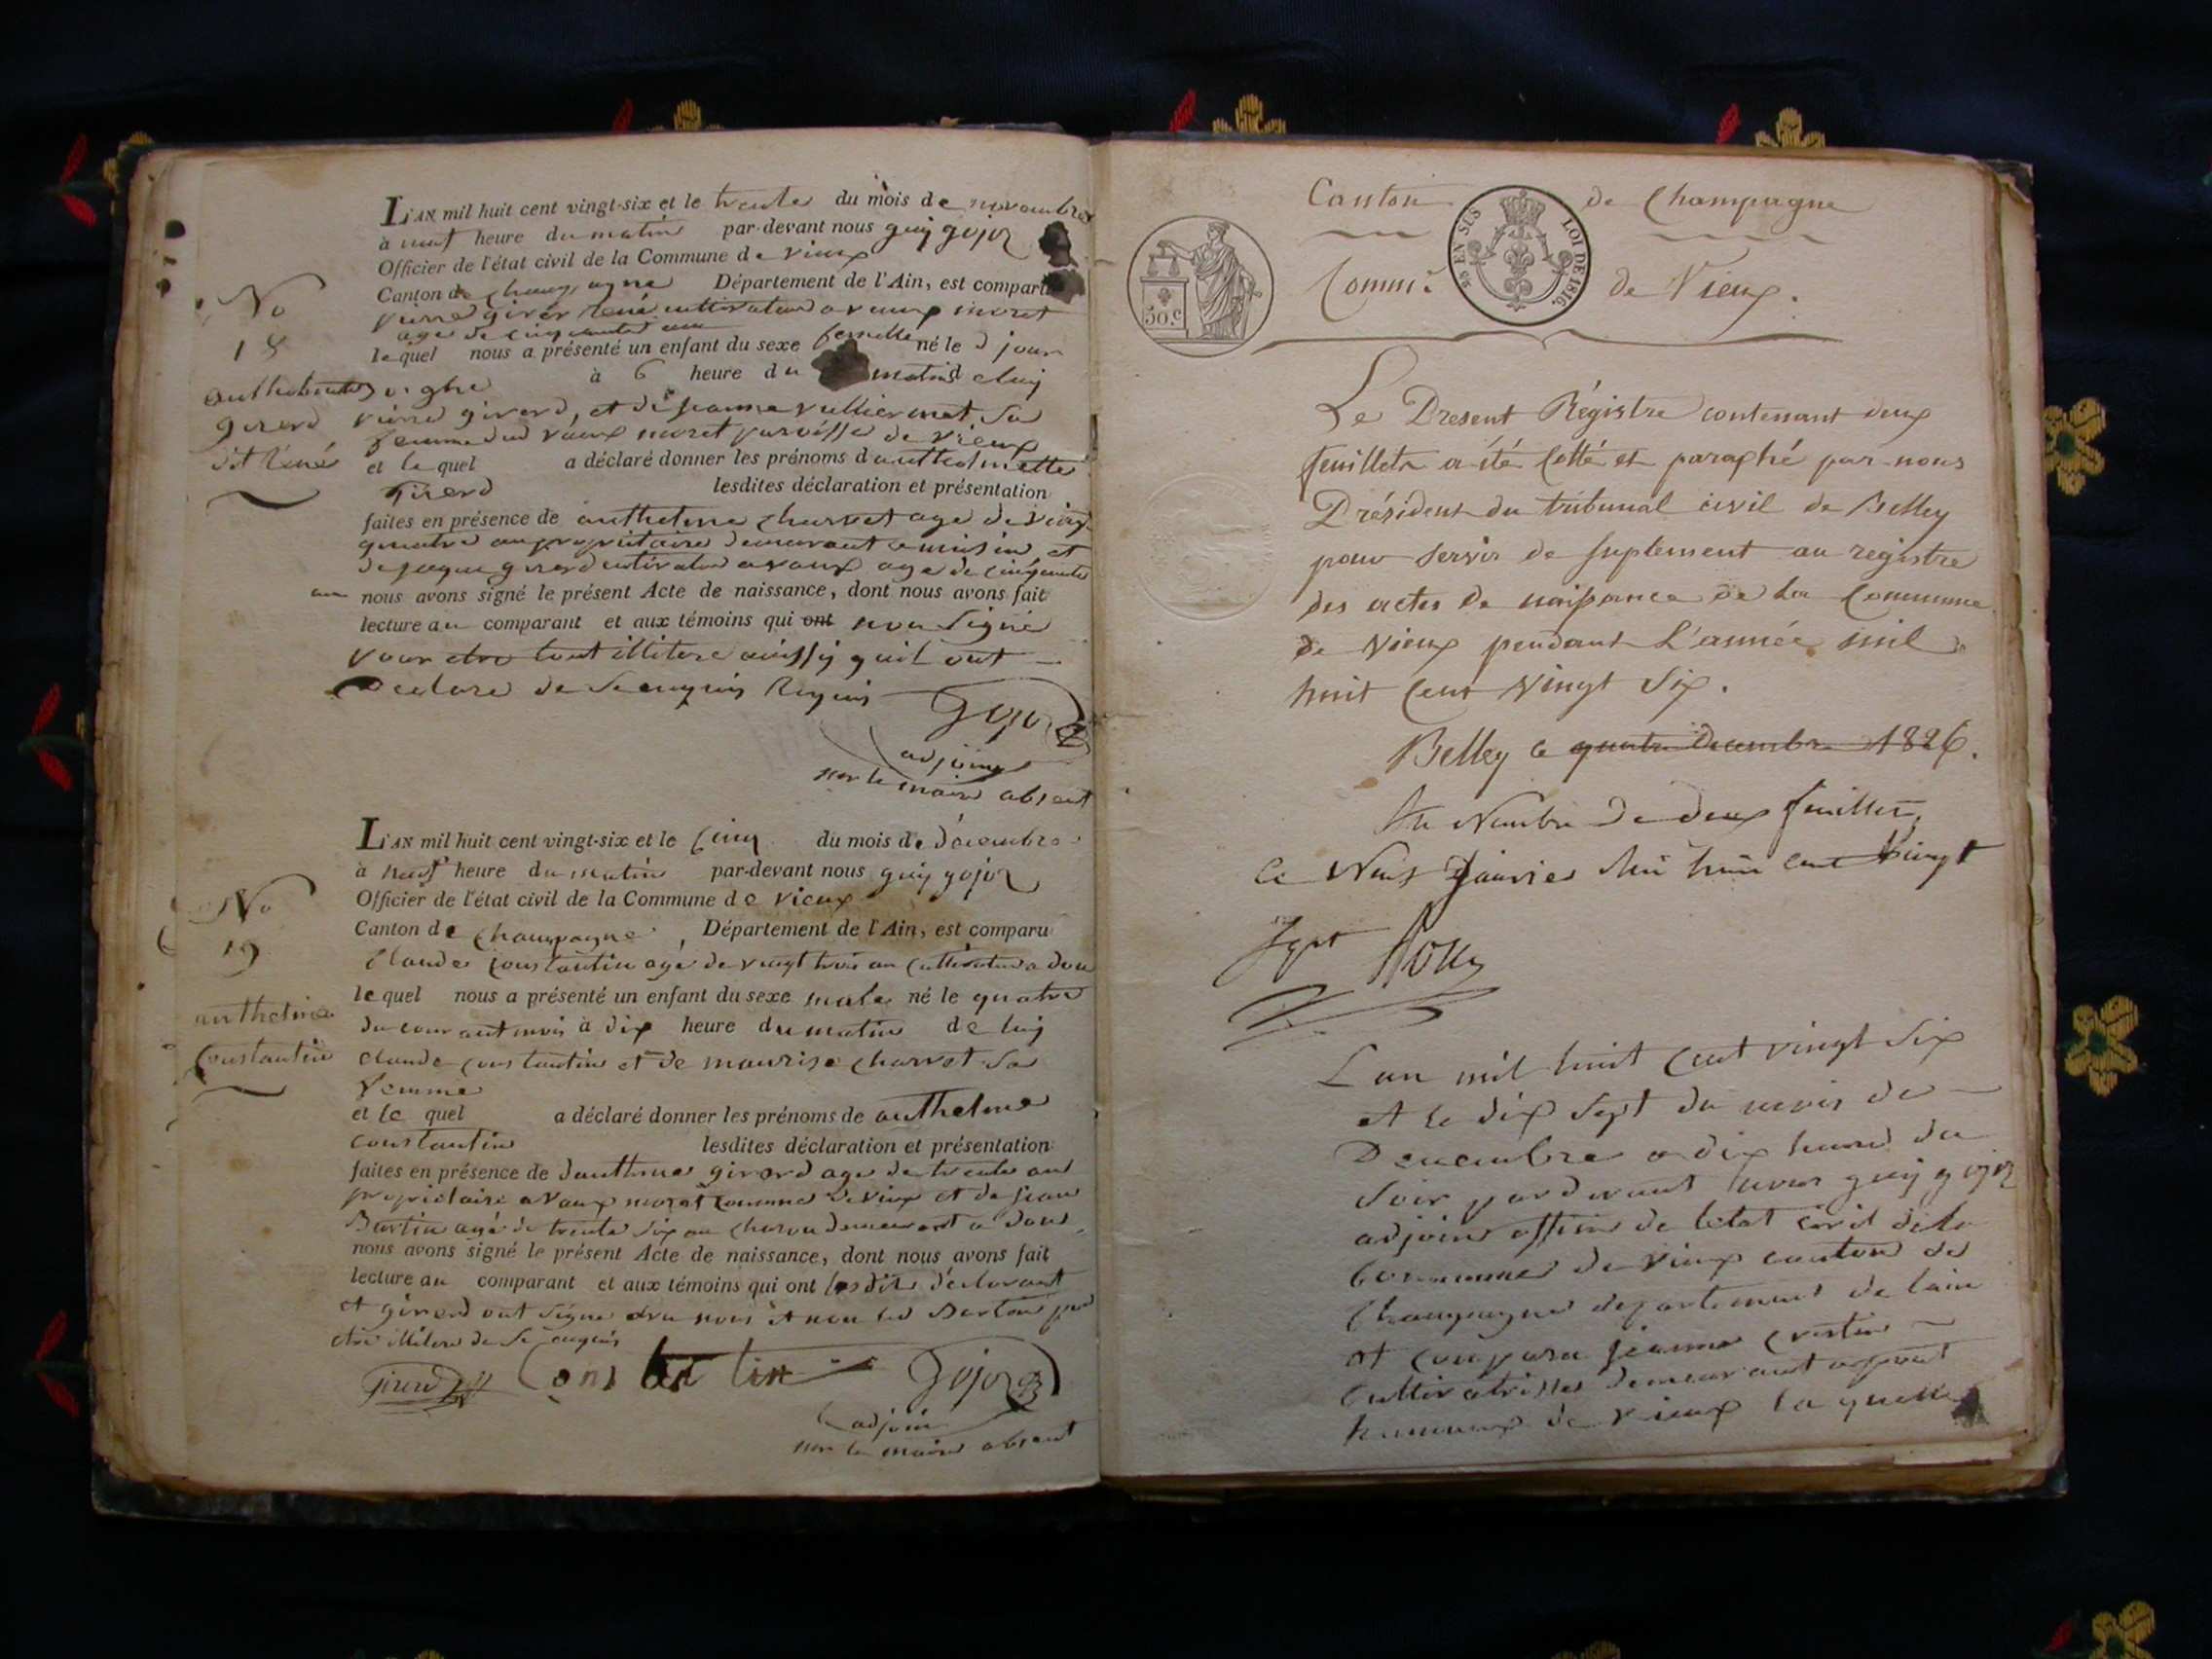 L'AN mil huit cent vingt-six et le trente du mois de novembre
à neuf heure du matin par-devant nous guy gojoz
Officier de l'état civil de la Commune de vieux
Canton de champagne Département de l'Ain, est comparu
No
18
lequel nous a présenté un enfant du sexe femelle né le d jour
à 6 heure du matin de luy
girerd
et de jeanne vulliermet sa
femme
et le quel a déclaré donner les prénoms d anthelmette
Girerd lesdites déclaration et présentation
faites en présence de anthelme charvet age de vingt
quatre an propriétaire demeurant a et
de jaque girerd cultivateur a vaux age de cinquante
an nous avons signé le présent Acte de naissance, dont nous avons fait
lecture au comparant et aux témoins qui ont non signé
pour etre tout illitere ainssy quil ont
declare de se enquis Requis
Gojoz
adjoint
pour le maire absent
L'AN mil huit cent vingt-six et le cinq du mois de décembre
à neuf heure du matin par-devant nous guy gojoz
Officier de l'état civil de la Commune de vieux
No
19
Canton de champagne Département de l'Ain, est comparu
Claude constantin agé de vingt trois an cultivateur a don
le quel nous a présenté un enfant du sexe male né le quatre
anthelme
Constantin
du courant mois à dix heure du matin de luy
claude constantin et de maurise charvet sa
femme
et le quel a déclaré donner les prénoms de anthelme
constantin lesdites déclaration et présentation
faites en présence de danthme girerd age de trente ans
propriétaire a vaux moret commune de vieux et de jean
Bertin agé de trente six an charon demeurant a don
nous avons signé le présent Acte de naissance, dont nous avons fait
lecture au comparant et aux témoins qui ont lesdits déclarant
et girerd ont signe avec nous et non led
etre illitere de se enquis
Girerd Constantin Gojoz
adjoint
pour le maire absent
Canton de Champagne
Comm.e de Vieux.
50.c
EN SUS LOI DE 1816.
Le Present Régistre contenant deux
feuillets a été Cotté et paraphé par nous
Président du tribunal civil de Belley
pour servir de suplement au registre
des actes de naissance de la Commune
de Vieux pendant L'année mil
huit Cent Vingt Six.
Belley le quatre Decembre 1826.
Au Nombre de deux feuillets
Ce Neuf Janvier Mil huit cent Vingt
Sept
L'an mil huit Cent vingt Six
et le dix Sept du mois de
Decembre a dix heure du
Soir pardevant nous guy gojoz
adjoint officier de letat civil dela
Commune de vieux canton de
Champagne departement de lain
et comparu jeanne
Cultivatrisse demeurant
hameaux de vieux la quelle